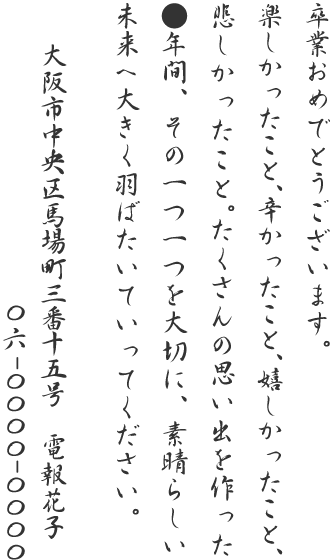 卒業おめでとうございます。
楽しかったこと、辛かったこと、嬉しかったこと、
悲しかったこと。たくさんの思い出を作った
●年間、その一つ一つを大切に、素晴らしい
未来へ大きく羽ばたいていってください。
大阪市中央区馬場町三番十五号　電報花子
〇六−〇〇〇〇−〇〇〇〇